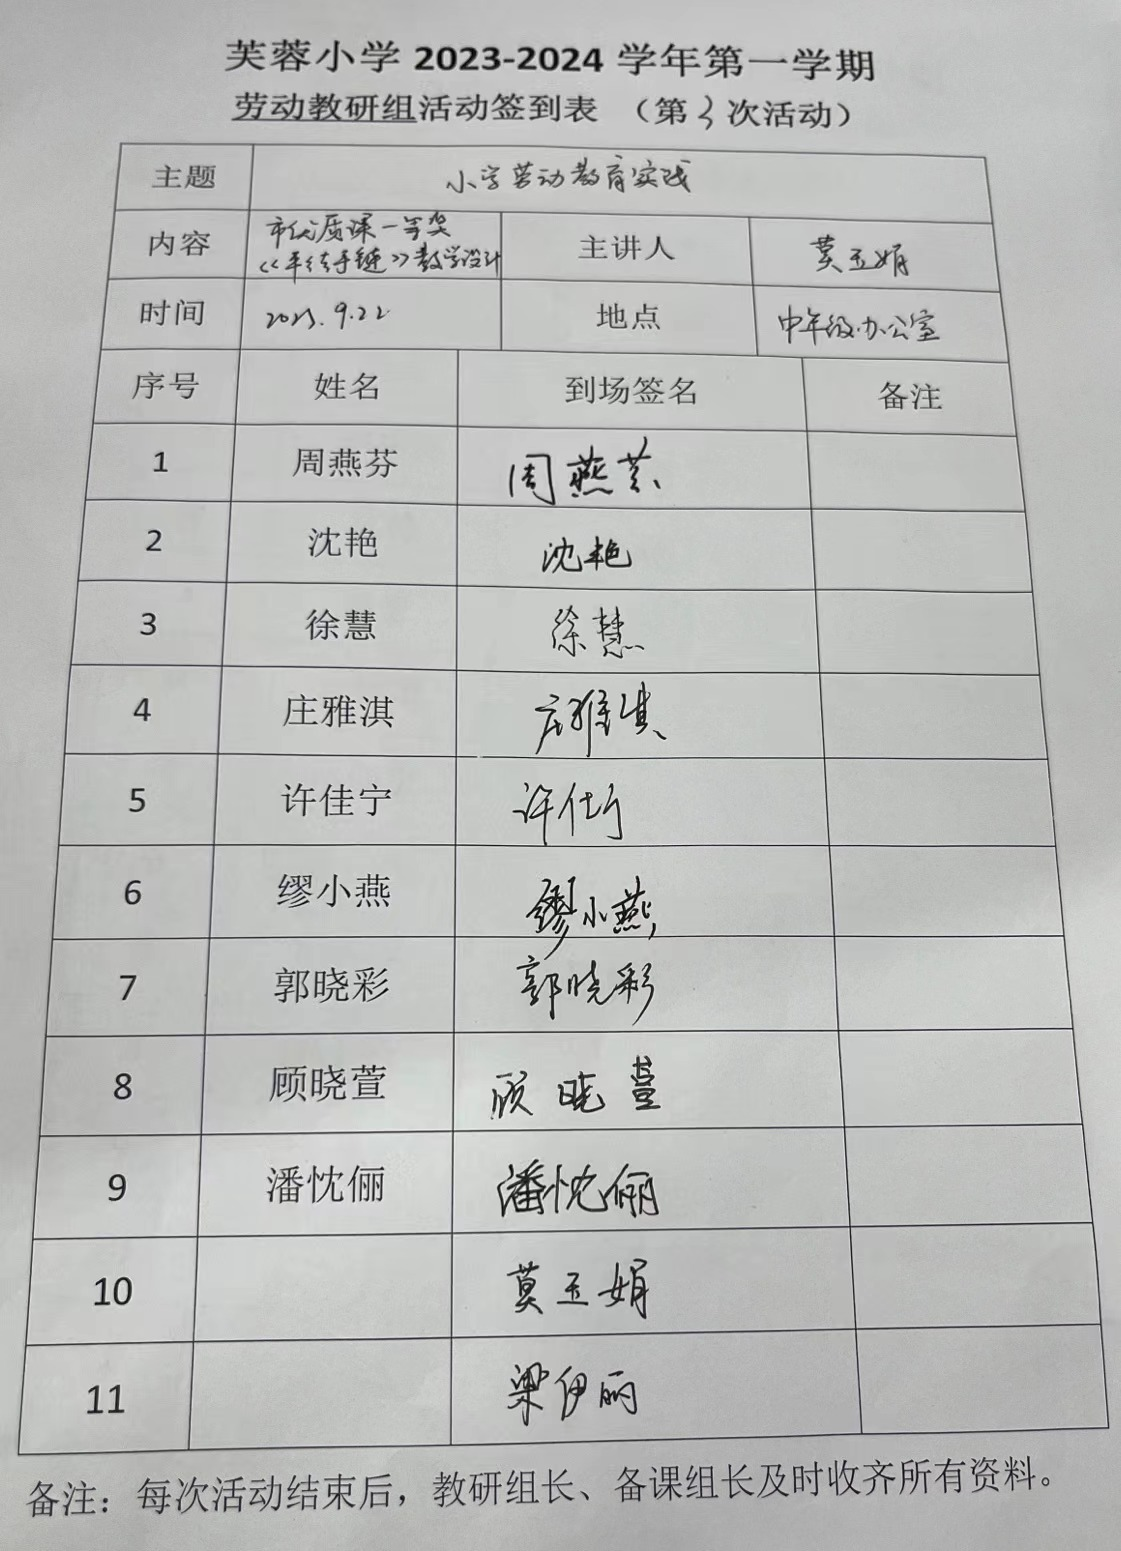 芙蓉小学 2023-2024 学年第一学期
劳动教研组活动签到表 （第 3 次活动）
主题 小学劳动教育实践
内容 市优质课一等奖《平结手链》教学设计 主讲人 莫玉娟
时间 2023.9.22 地点 中年级办公室
序号 姓名 到场签名 备注
1 周燕芬 周燕芬
2 沈艳 沈艳
3 徐慧 徐慧
4 庄雅淇 庄雅淇
5 许佳宁 许佳宁
6 缪小燕 缪小燕
7 郭晓彩 郭晓彩
8 顾晓萱 顾晓萱
9 潘忱俪 潘忱俪
10 莫玉娟
11 梁伊丽
备注：每次活动结束后，教研组长、备课组长及时收齐所有资料。